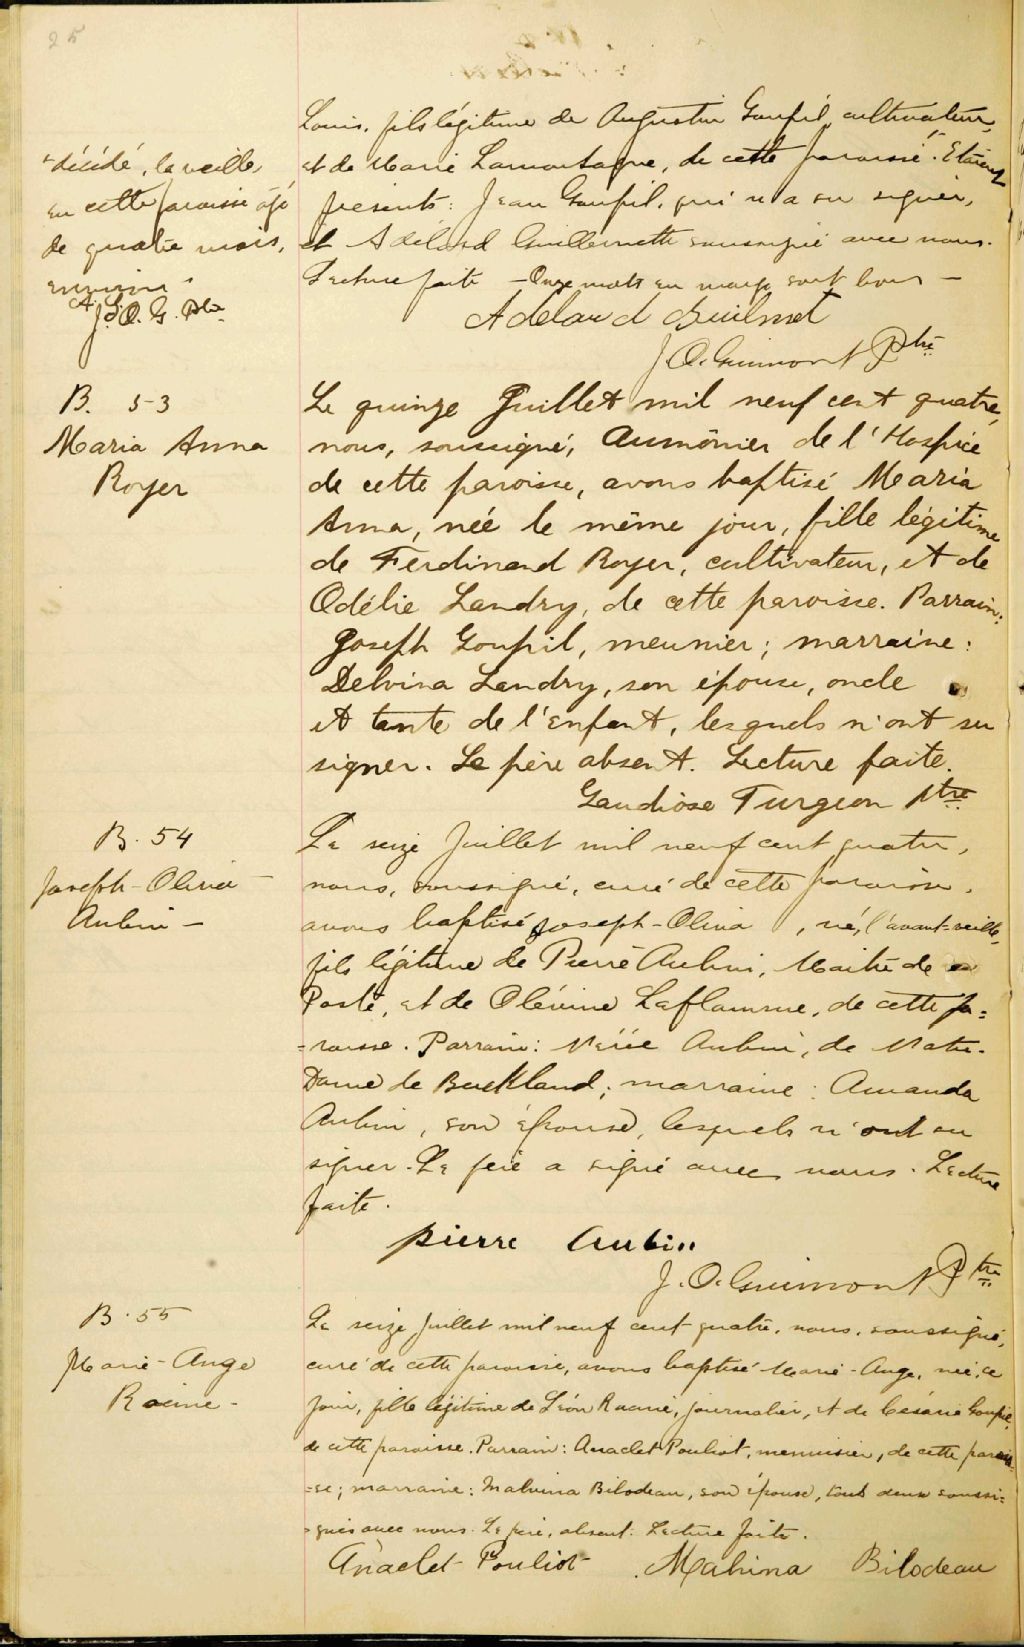 25
Louis, fils légitime de Augustin Goupil, cultivateur,
et de Marie Lamontagne, de cette paroisse. Etaient
présents: Jean Goupil, qui n'a su signer,
et Adélard Guillemette soussigné avec nous.
Lecture faite — Onze mots en marge sont bons —
Adelard Guilmet
J. O. Guimont Ptre
décédé, la veille,
en cette paroisse âgé
de quatre mois,
environ
A. G.
J. O. G. Ptre
B. 53
Maria Anna
Royer
Le quinze Juillet mil neuf cent quatre,
nous, soussigné, Aumônier de l'Hospice
de cette paroisse, avons baptisé Maria
Anna, née le même jour, fille légitime
de Ferdinand Royer, cultivateur, et de
Odélie Landry, de cette paroisse. Parrain:
Joseph Goupil, meunier; marraine:
Delvina Landry, son épouse, oncle
et tante de l'enfant, lesquels n'ont su
signer. Le père absent. Lecture faite.
Gaudiose Turgeon ptre
B. 54
Joseph-Oliva
Aubin —
Le seize Juillet mil neuf cent quatre,
nous, soussigné, curé de cette paroisse,
avons baptisé Joseph-Oliva, né, l'avant-veille,
fils légitime de Pierre Aubin, Maître de
Poste, et de Olévine Laflamme, de cette pa=
=roisse. Parrain: Aubin, de Notre-
Dame de Buckland; marraine: Amanda
Aubin, son épouse, lesquels n'ont su
signer. Le père a signé avec nous. Lecture
faite.
pierre Aubin
J. O. Guimont Ptre
B. 55
Marie-Ange
Racine -
Le seize Juillet mil neuf cent quatre, nous, soussigné,
curé de cette paroisse, avons baptisé Marie-Ange, née, ce
jour, fille légitime de Léon Racine, journalier, et de Césarie Goupil,
de cette paroisse. Parrain: Anaclet Pouliot, menuisier, de cette parois=
=se; marraine: Malvina Bilodeau, son épouse, tous deux soussi=
=gnés avec nous. Le père, absent. Lecture faite.
Anaclet Pouliot Malvina Bilodeau